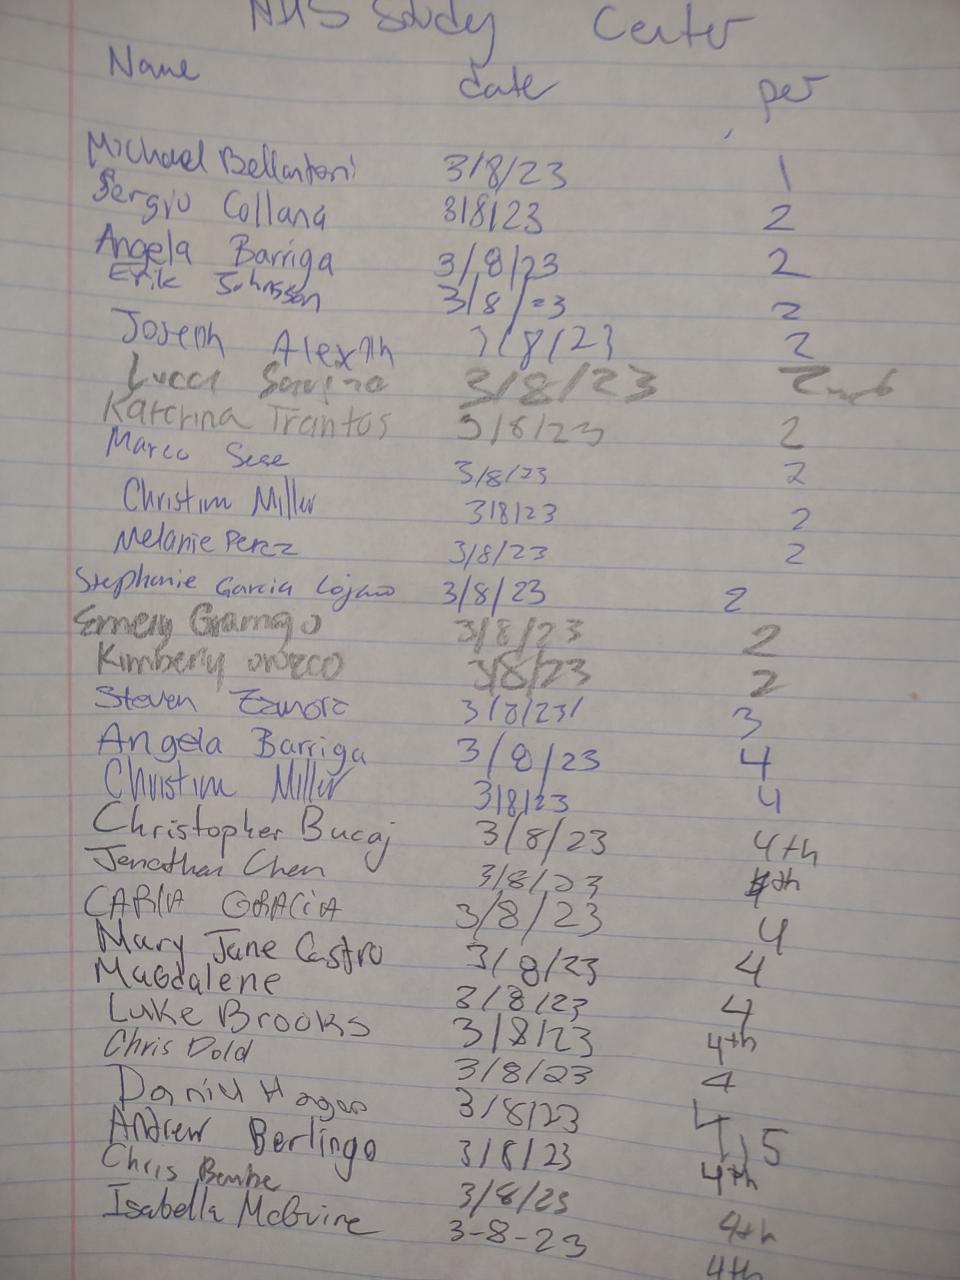 NHS Study Center
Name date per
Michael Bellantoni 3/8/23 1
Sergio Collana 3/8/23 2
Angela Barriga 3/8/23 2
Erik Johnsson 3/8/23 2
Joseph 3/8/23 2
3/8/23 2
Katerina Trantos 3/8/23 2
Marco 3/8/23 2
Miller 3/8/23 2
Melanie Perez 3/8/23 2
Stephanie Garcia Lojano 3/8/23 2
Emery 3/8/23 2
Kimberly orozco 3/8/23 2
Steven Zamora 3/8/23 3
Angela Barriga 3/8/23 4
Miller 3/8/23 4
Christopher Bucaj 3/8/23 4th
Jonathan Chen 3/8/23 4th
CARLA GRACIA 3/8/23 4
Mary Jane Castro 3/8/23 4
Magdalene 3/8/23 4
Luke Brooks 3/8/23 4th
Chris Dold 3/8/23 4
Daniel 3/8/23 4,5
Andrew Berlingo 3/8/23 4th
Chris 3/8/23 4th
Isabella McGuire 3-8-23 4th